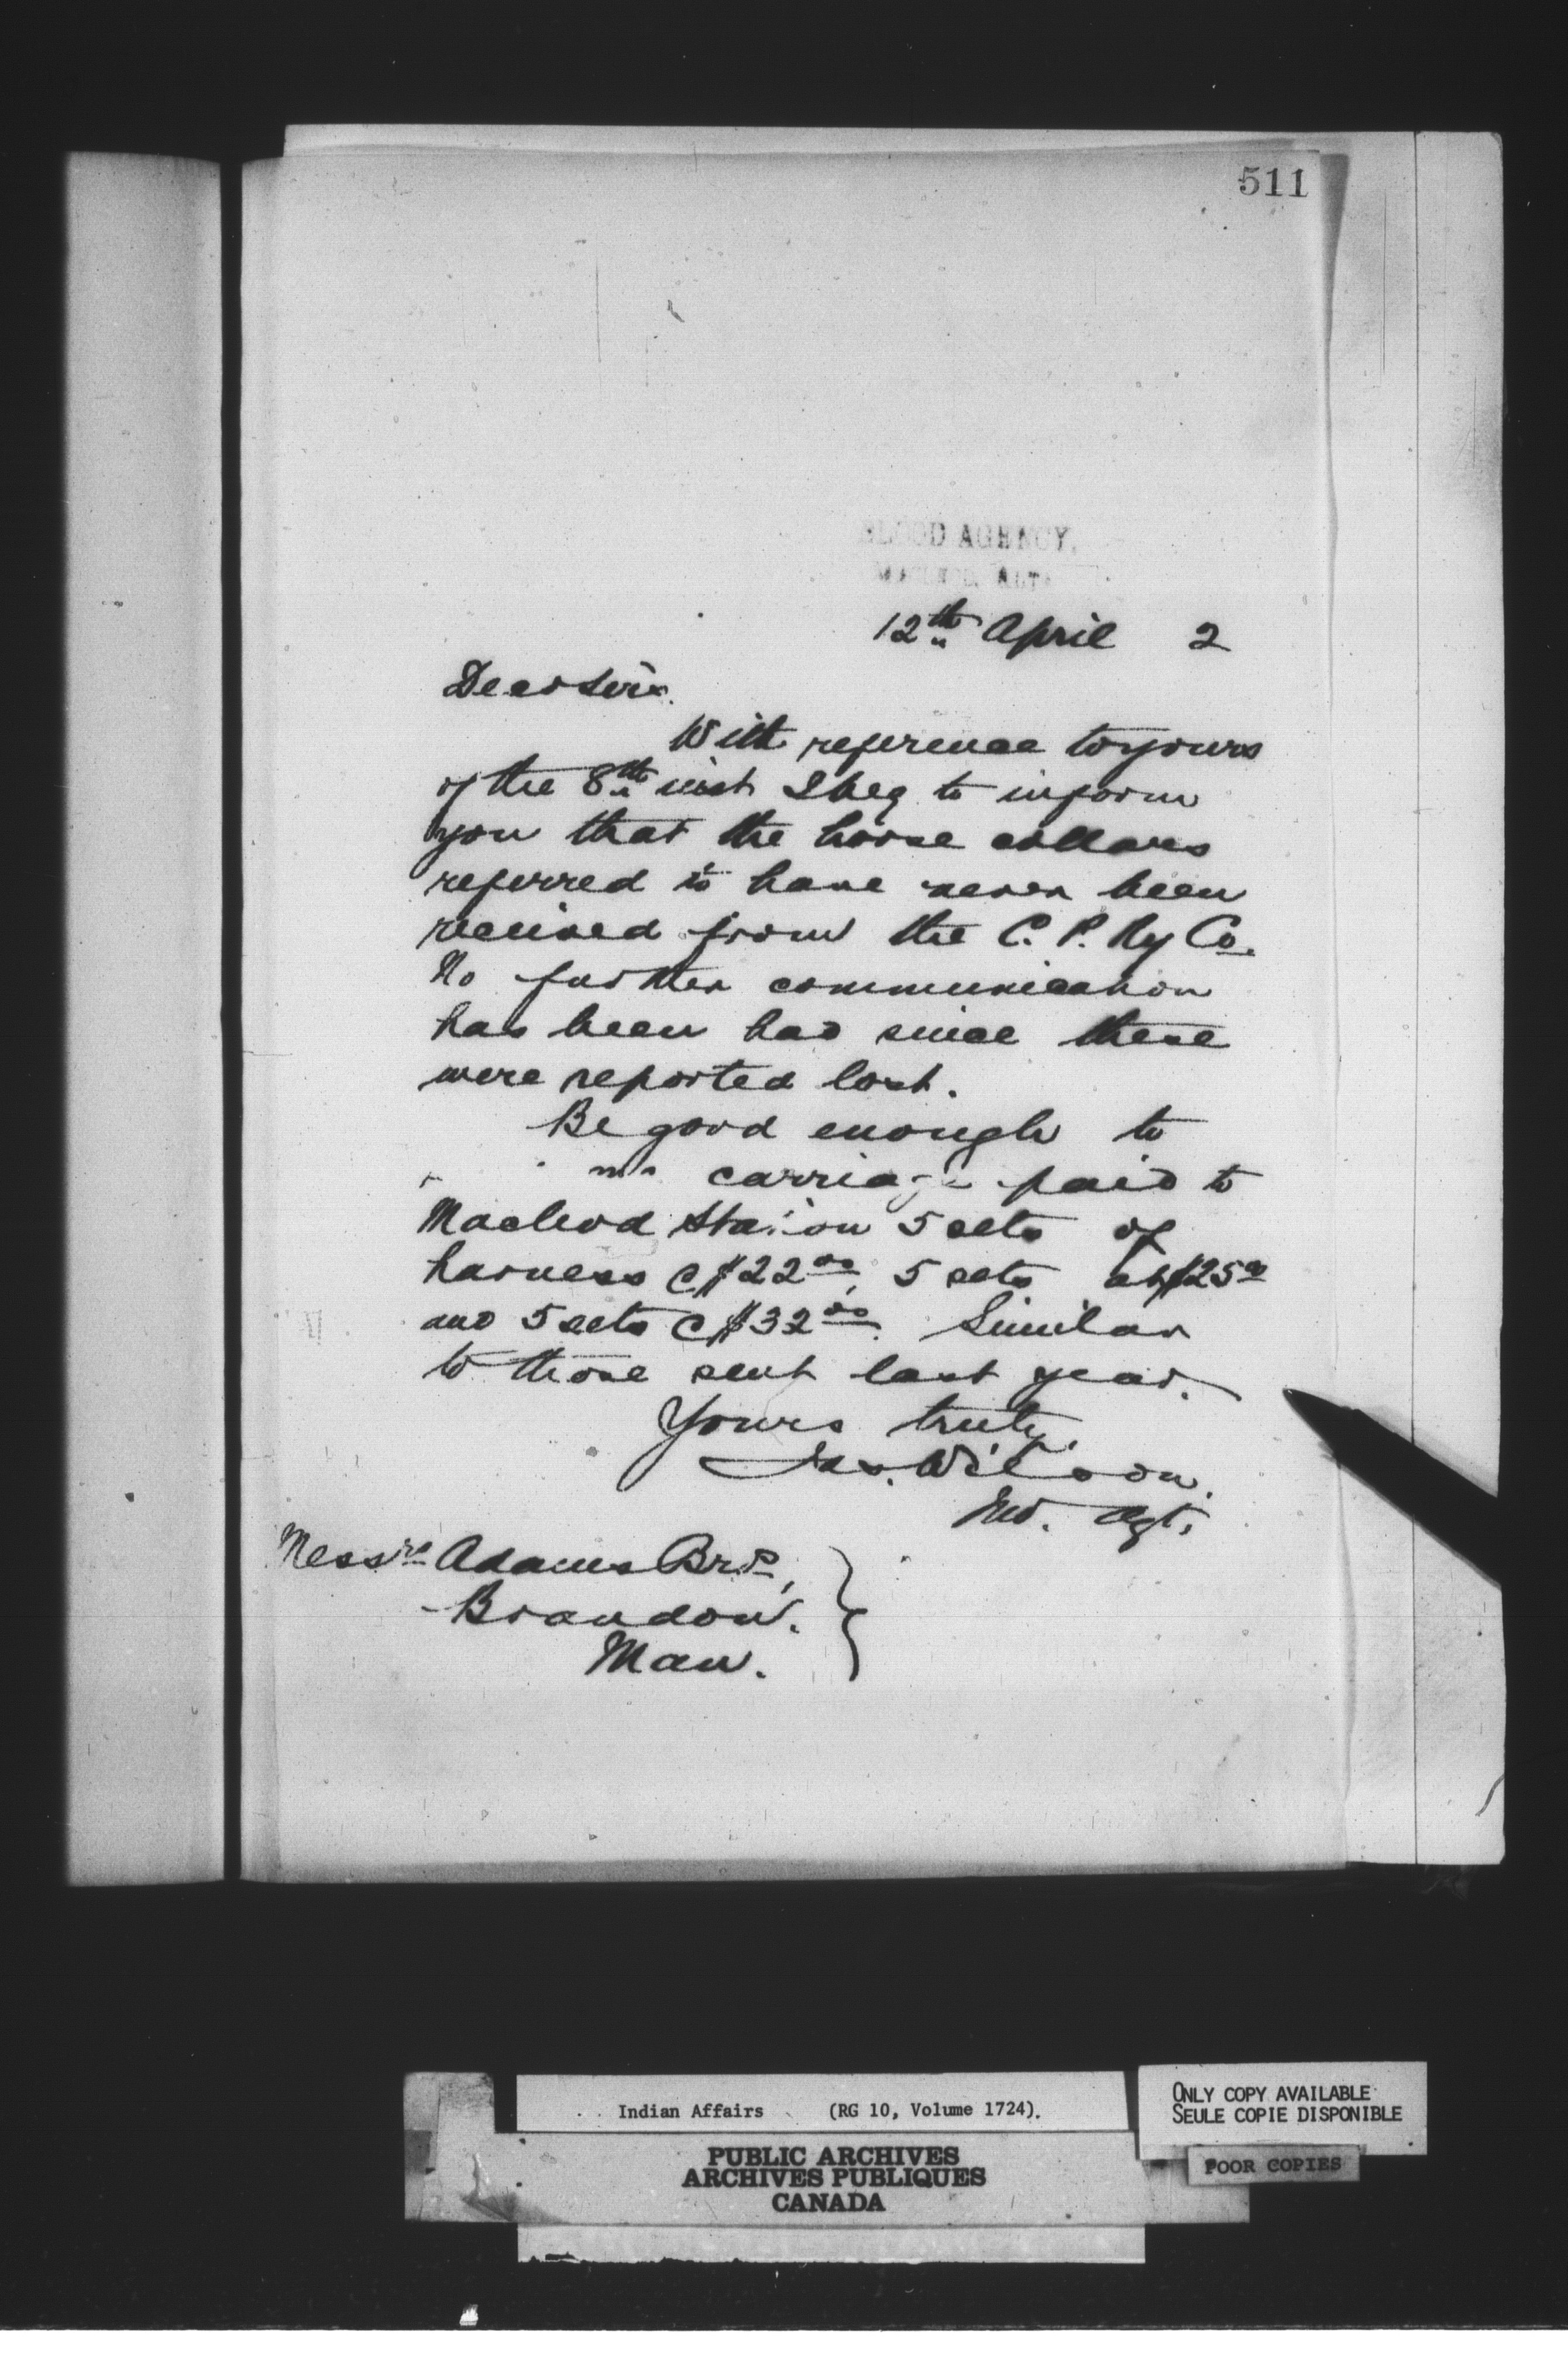 511
BLOOD AGENCY,
MACLEOD, ALTA
12th April 2
Dear Sirs.
With reference to yours
of the 8th inst I beg to inform
you that the horse collars
referred to have never been
received from the C. P. Ry Co.
No further communication
has been had since these
were reported lost.
Be good enough to
carriage paid to
Macleod Station 5 sets of
harness @ $22.00, 5 sets at $25.00
and 5 sets @ $32.00. Similar
to those sent last year.
Yours truly,
Jas. Wilson.
Ind. Agt.
Messrs Adams Bros,
Brandon.
Man.
Indian Affairs (RG 10, Volume 1724).
PUBLIC ARCHIVES
ARCHIVES PUBLIQUES
CANADA
ONLY COPY AVAILABLE
SEULE COPIE DISPONIBLE
POOR COPIES